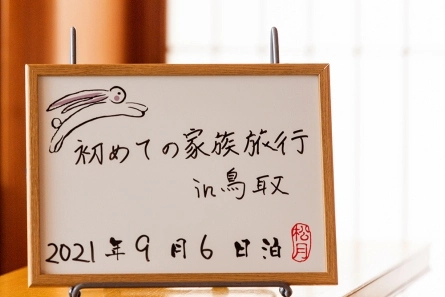 初めての家族旅行
in鳥取
2021年9月6日泊
松月